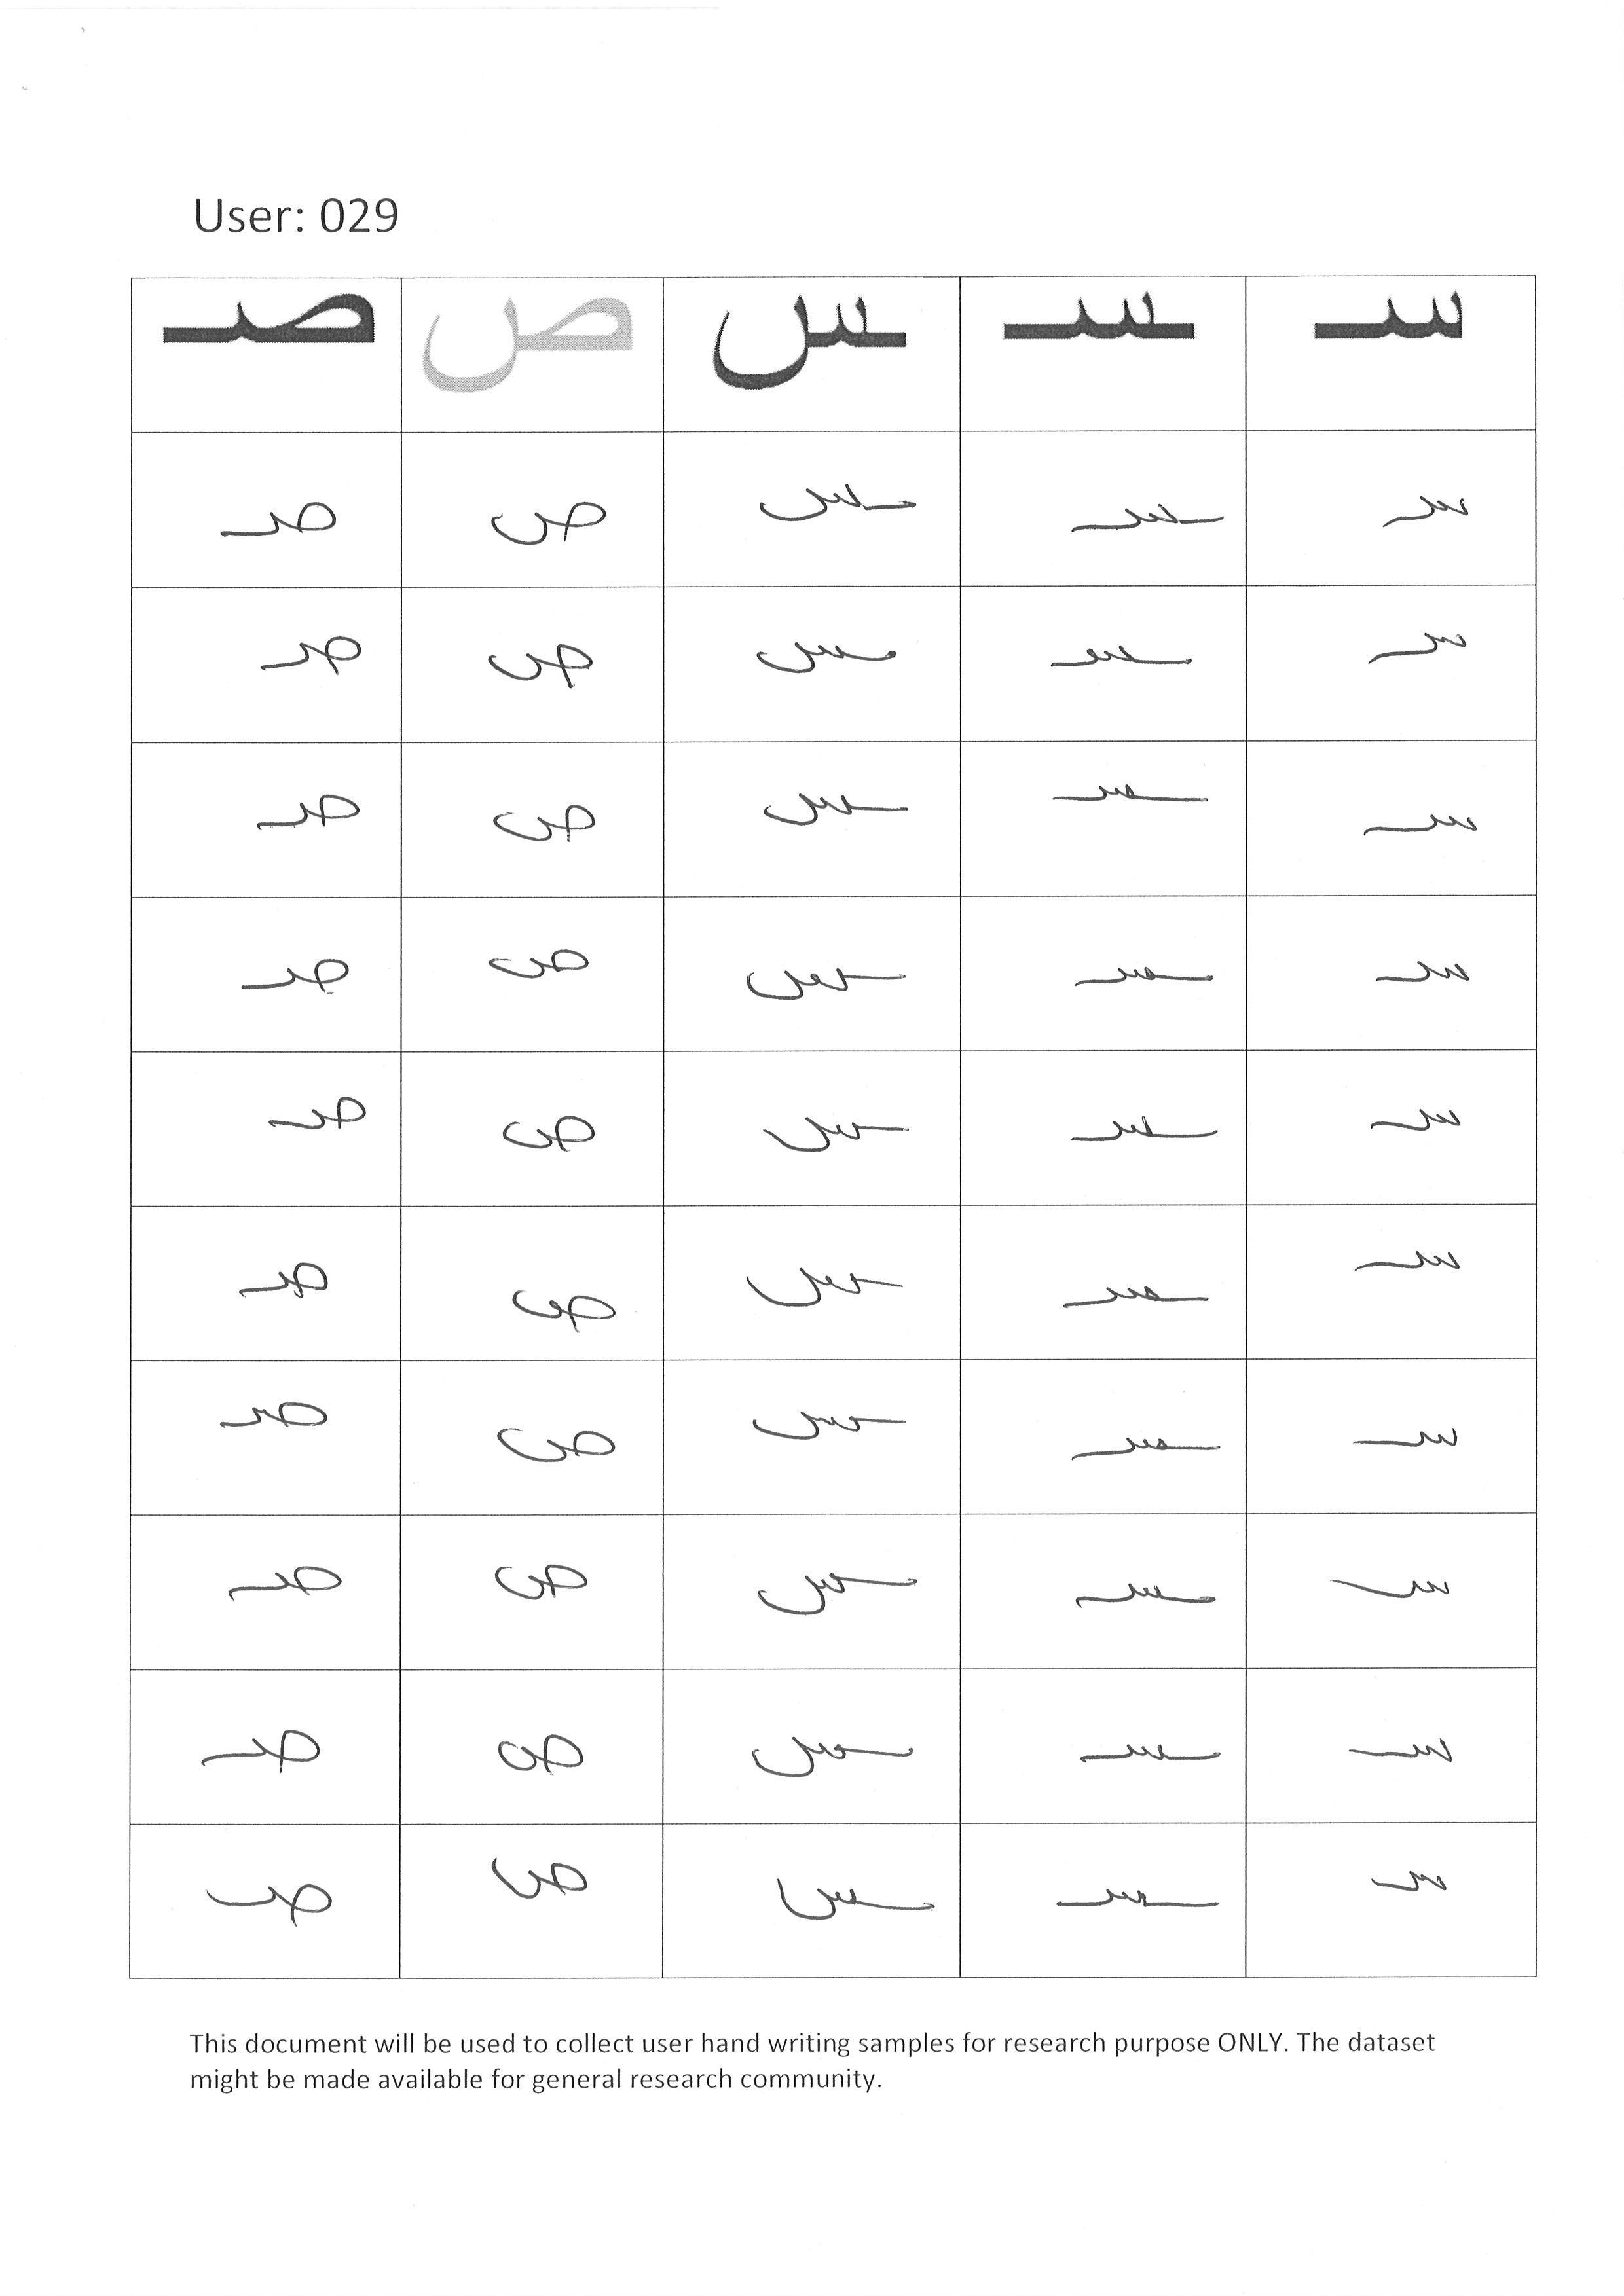 User: 029
سـ ـسـ ـس ص صـ
سـ ـسـ ـس ص صـ
سـ ـسـ ـس ص صـ
سـ ـسـ ـس ص صـ
سـ ـسـ ـس ص صـ
سـ ـسـ ـس ص صـ
سـ ـسـ ـس ص صـ
سـ ـسـ ـس ص صـ
سـ ـسـ ـس ص صـ
سـ ـسـ ـس ص صـ
سـ ـسـ ـس ص صـ
This document will be used to collect user hand writing samples for research purpose ONLY. The dataset
might be made available for general research community.